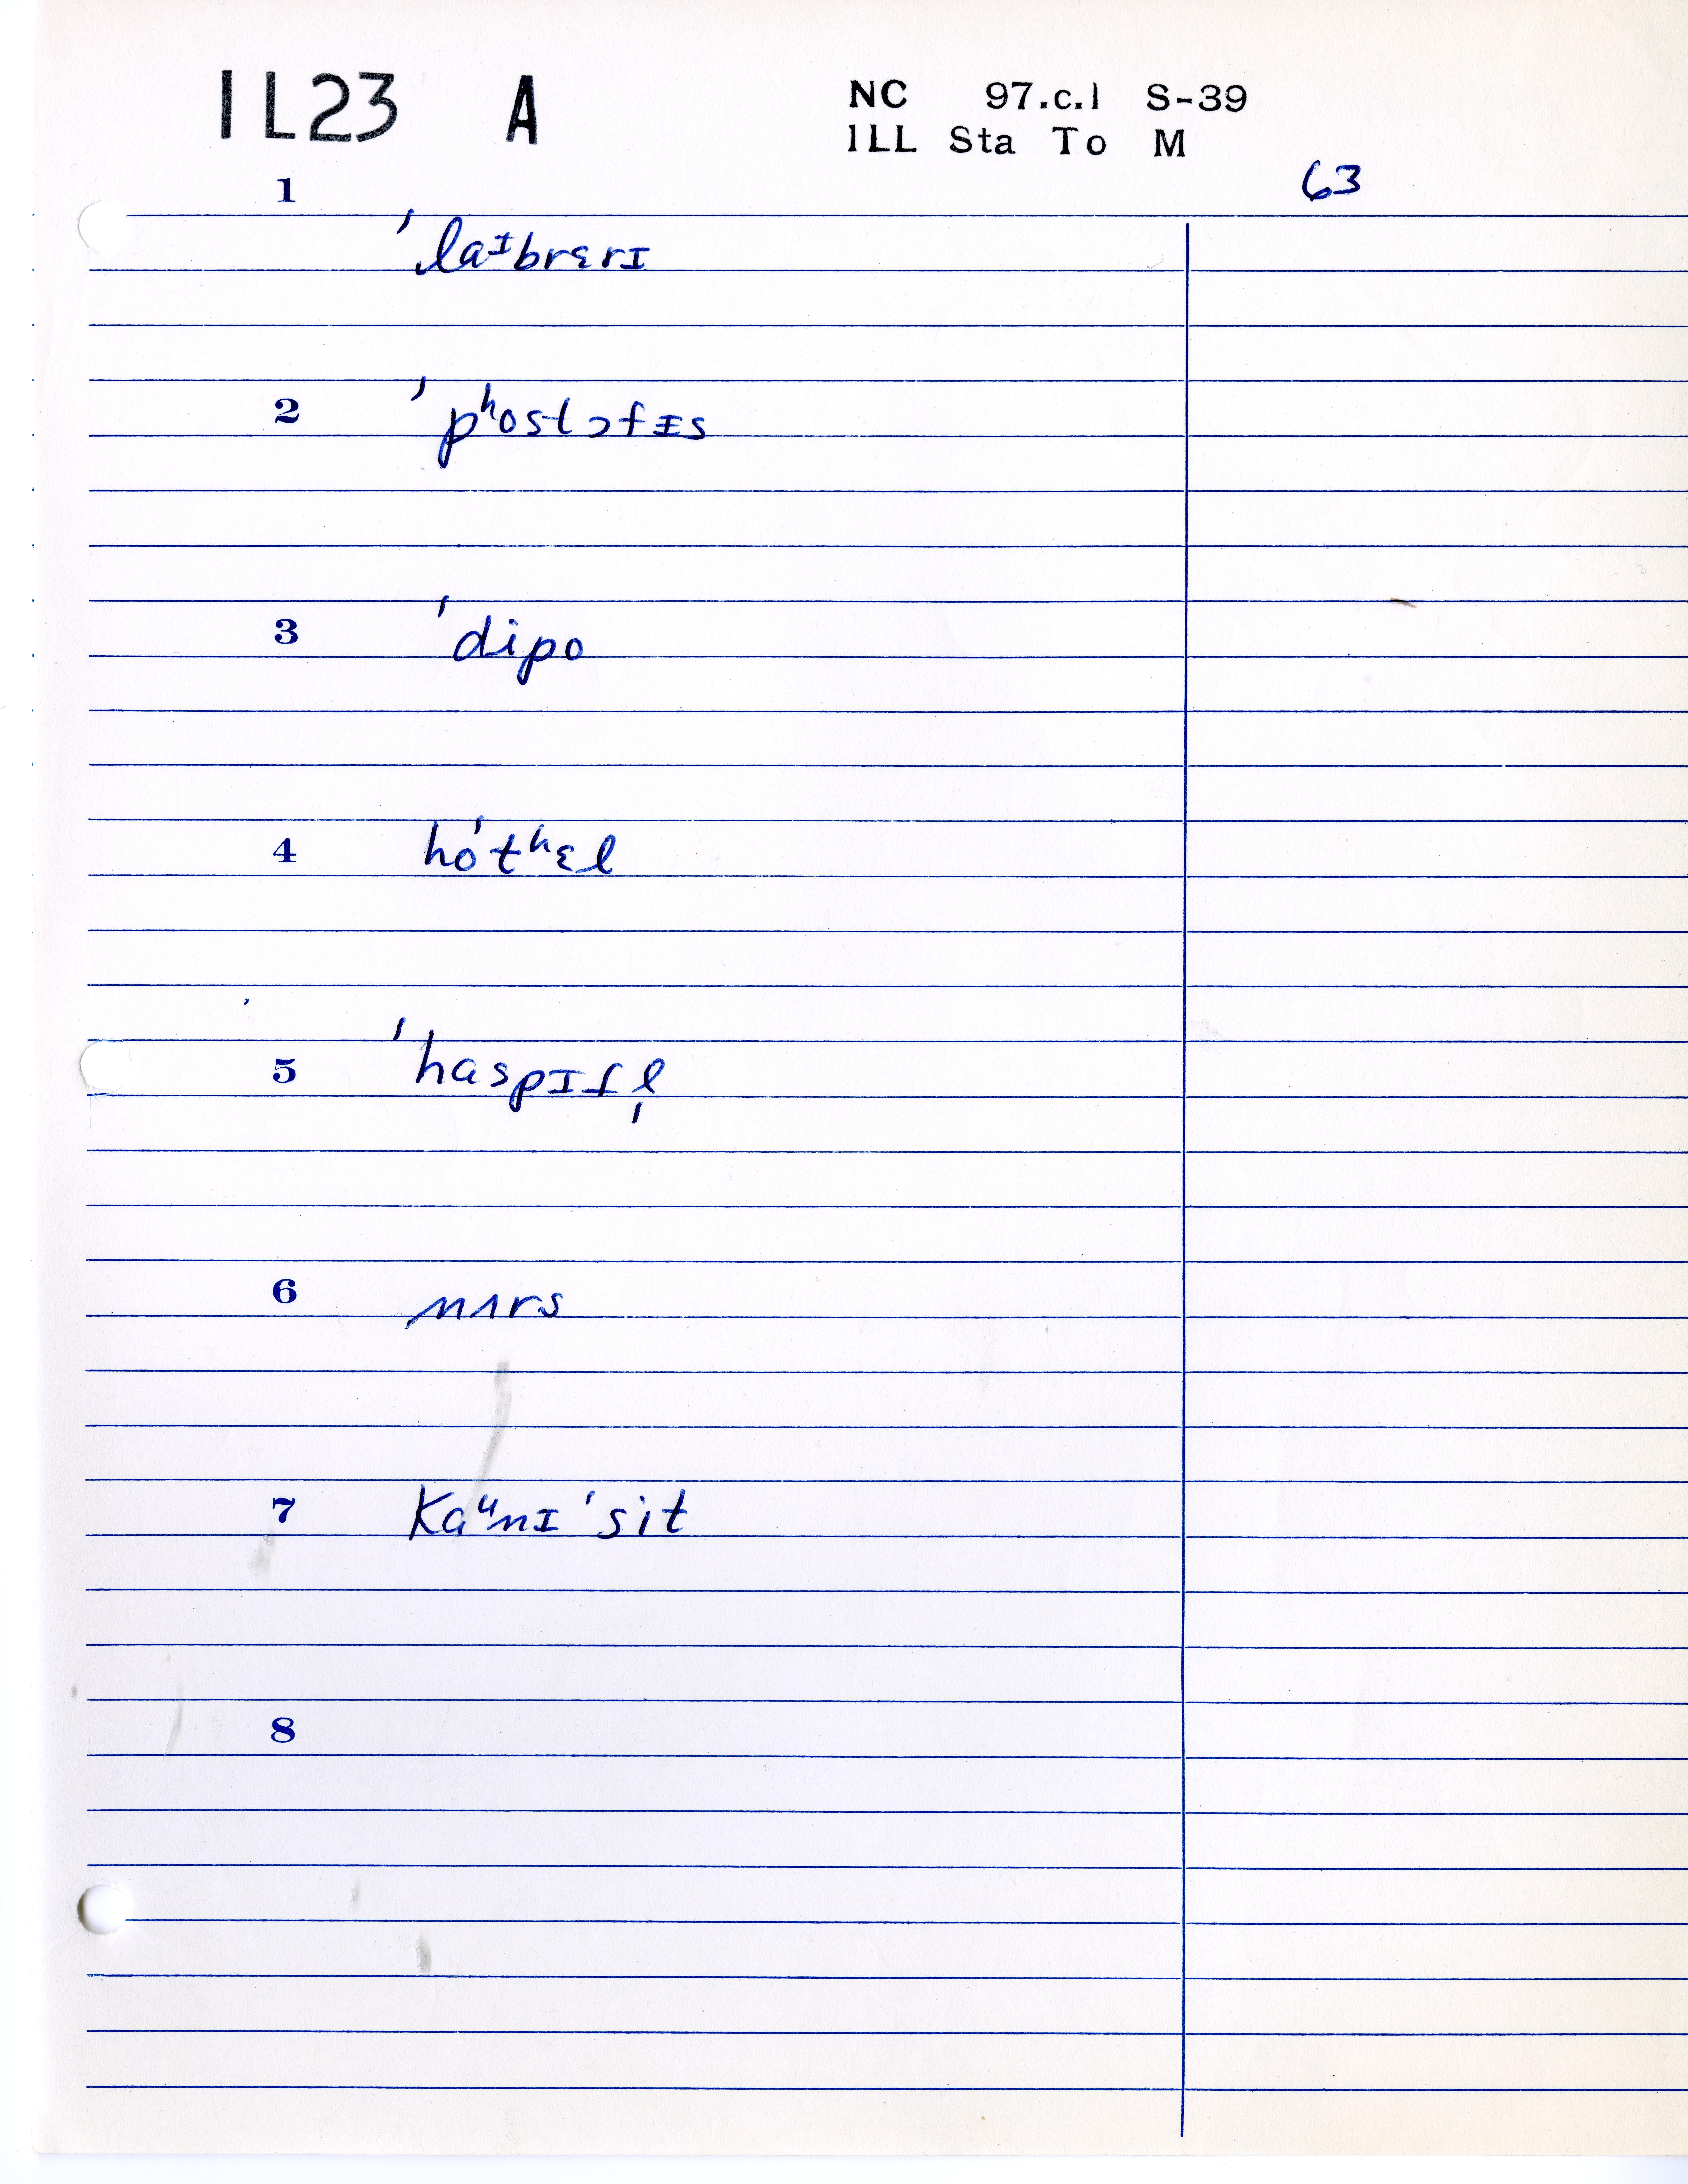 1L23 A NC 97.c.1 S-39
1LL Sta To M
63
1 ˈlaᶦbrɛrɪ
2 ˈpʰostɔfɪs
3 ˈdipo
4 hoˈtʰɛl
5 ˈhaspɪɾl̩
6 nʌrs
7 kaᵘnɪˈsit
8